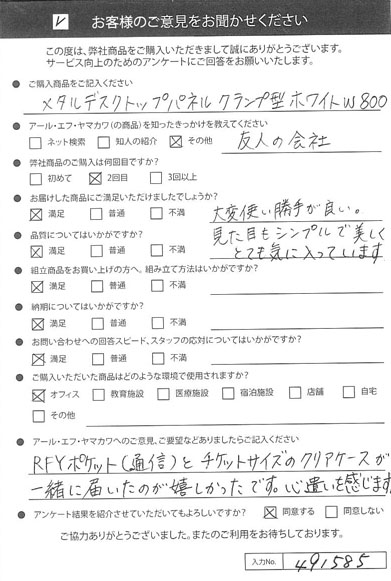 ☑ お客様のご意見をお聞かせください
この度は、弊社商品をご購入いただきまして誠にありがとうございます。
サービス向上のためのアンケートにご回答をお願いいたします。
● ご購入商品をご記入ください
メタルデスクトップパネル クランプ型 ホワイトW800
● アール・エフ・ヤマカワ(の商品)を知ったきっかけを教えてください
☐ ネット検索 ☐ 知人の紹介 ☒ その他 友人の会社
● 弊社商品のご購入は何回目ですか?
☐ 初めて ☒ 2回目 ☐ 3回以上
● お届けした商品にご満足いただけましたでしょうか?
☒ 満足 ☐ 普通 ☐ 不満 大変使い勝手が良い。
● 品質についてはいかがですか?
☒ 満足 ☐ 普通 ☐ 不満 見た目もシンプルで美しく
とても気に入っています
● 組立商品をお買い上げの方へ。組み立て方法はいかがですか?
☒ 満足 ☐ 普通 ☐ 不満
● 納期についてはいかがですか?
☒ 満足 ☐ 普通 ☐ 不満
● お問い合わせへの回答スピード、スタッフの応対についてはいかがですか?
☒ 満足 ☐ 普通 ☐ 不満
● ご購入いただいた商品はどのような環境で使用されますか?
☒ オフィス ☐ 教育施設 ☐ 医療施設 ☐ 宿泊施設 ☐ 店舗 ☐ 自宅
☐ その他
● アール・エフ・ヤマカワへのご意見、ご要望などありましたらご記入ください
RFYポケット(通信)とチケットサイズのクリアケースが
一緒に届いたのが嬉しかったです。心遣いを感じます
● アンケート結果を紹介させていただいてもよろしいですか? ☒ 同意する ☐ 同意しない
ご協力ありがとうございました。またのご利用をお待ちしております。
入力No. 491585